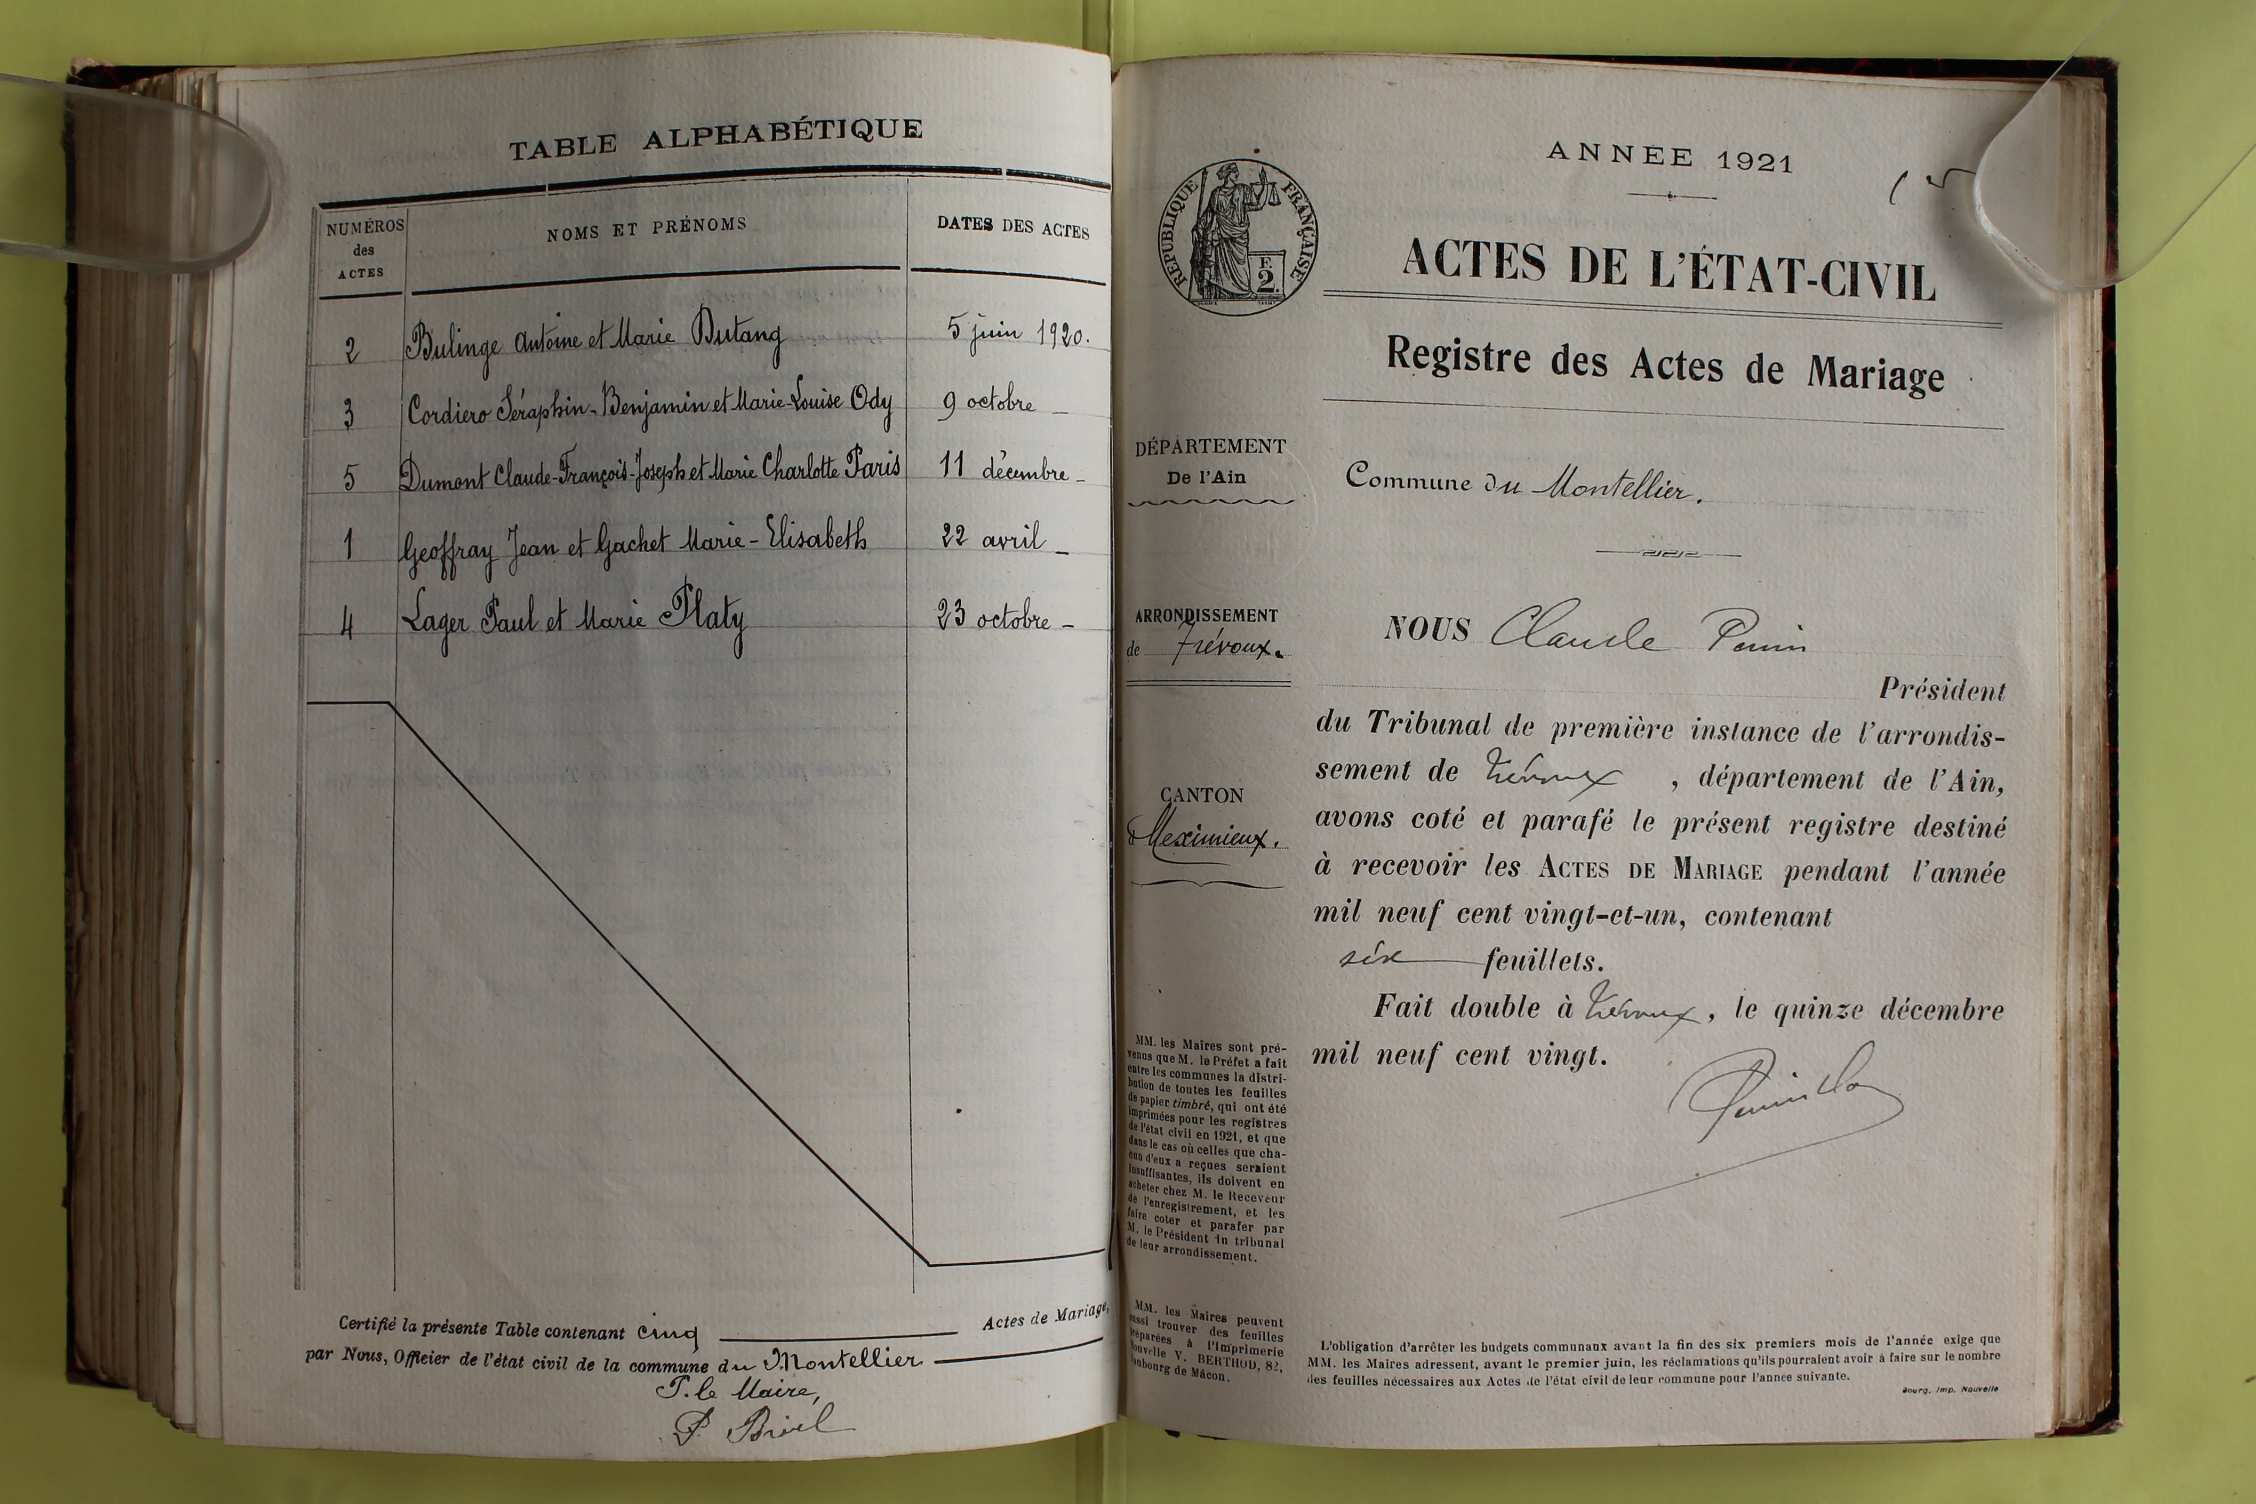 TABLE ALPHABÉTIQUE
NUMÉROS des ACTES
NOMS ET PRÉNOMS
DATES DES ACTES
2 Bulinge Antoine et Marie Dutang 5 juin 1920.
3 Cordiero Séraphin-Benjamin et Marie-Louise Ody 9 octobre _
5 Dumont Claude-François-Joseph et Marie Charlotte Paris 11 décembre _
1 Geoffray Jean et Gachet Marie-Elisabeth 22 avril _
4 Lager Paul et Marie Platy 23 octobre _
Certifié la présente Table contenant cinq Actes de Mariage,
par Nous, Officier de l'état civil de la commune du Montellier
P. le Maire,
ANNÉE 1921
RÉPUBLIQUE FRANÇAISE
F.
2.
ACTES DE L'ÉTAT-CIVIL
Registre des Actes de Mariage
DÉPARTEMENT
De l'Ain
Commune du Montellier.
ARRONDISSEMENT
de Trévoux.
CANTON
Meximieux.
MM. les Maires sont pré-
venus que M. le Préfet a fait
entre les communes la distri-
bution de toutes les feuilles
de papier timbré, qui ont été
imprimées pour les registres
de l'état civil en 1921, et que
dans le cas où celles que cha-
cun d'eux a reçues seraient
insuffisantes, ils doivent en
acheter chez M. le Receveur
de l'enregistrement, et les
faire coter et parafer par
M. le Président du tribunal
de leur arrondissement.
MM. les Maires peuvent
aussi trouver des feuilles
préparées à l'Imprimerie
Nouvelle V. BERTHOD, 82,
faubourg de Mâcon.
NOUS Claude Perrin
Président
du Tribunal de première instance de l'arrondis-
sement de Trévoux, département de l'Ain,
avons coté et parafé le présent registre destiné
à recevoir les ACTES DE MARIAGE pendant l'année
mil neuf cent vingt-et-un, contenant
six feuillets.
Fait double à Trévoux, le quinze décembre
mil neuf cent vingt.
L'obligation d'arrêter les budgets communaux avant la fin des six premiers mois de l'année exige que
MM. les Maires adressent, avant le premier juin, les réclamations qu'ils pourraient avoir à faire sur le nombre
des feuilles nécessaires aux Actes de l'état civil de leur commune pour l'année suivante.
Bourg, Imp. Nouvelle